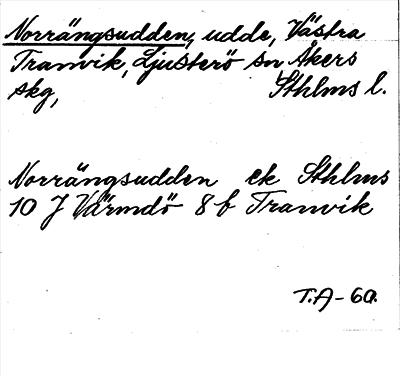 Norrängsudden, udde, Västra
Tranvik, Ljusterö sn Åkers
skg, Sthlms l.
Norrängsudden ek Sthlms
10 J Värmdö 8 b Tranvik
T.A-60.